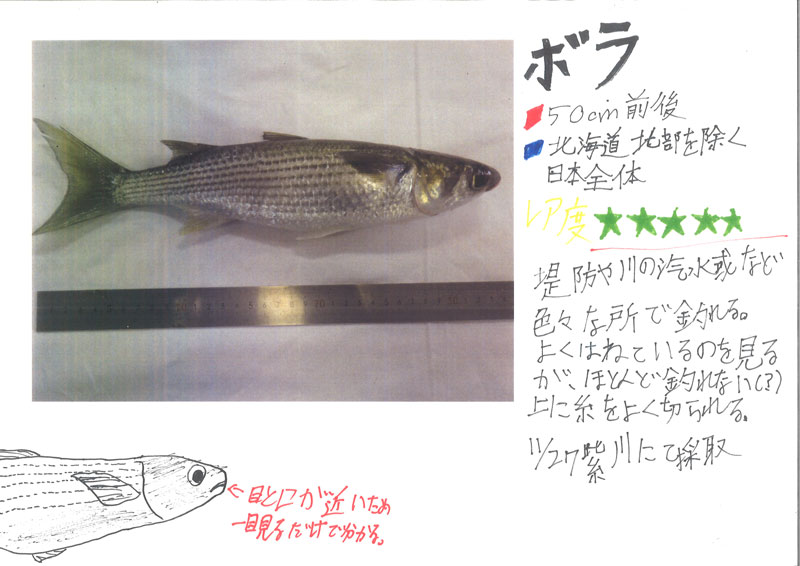 ボラ
50cm前後
北海道北部を除く
日本全体
レア度 ★★★★★
堤防や川の汽水或など
色々な所で釣れる。
よくはねているのを見る
が、ほとんど釣れない(?)
上に糸をよく切られる。
紫川にて採取
←目と口が近いため
一目見るだけで分かる。